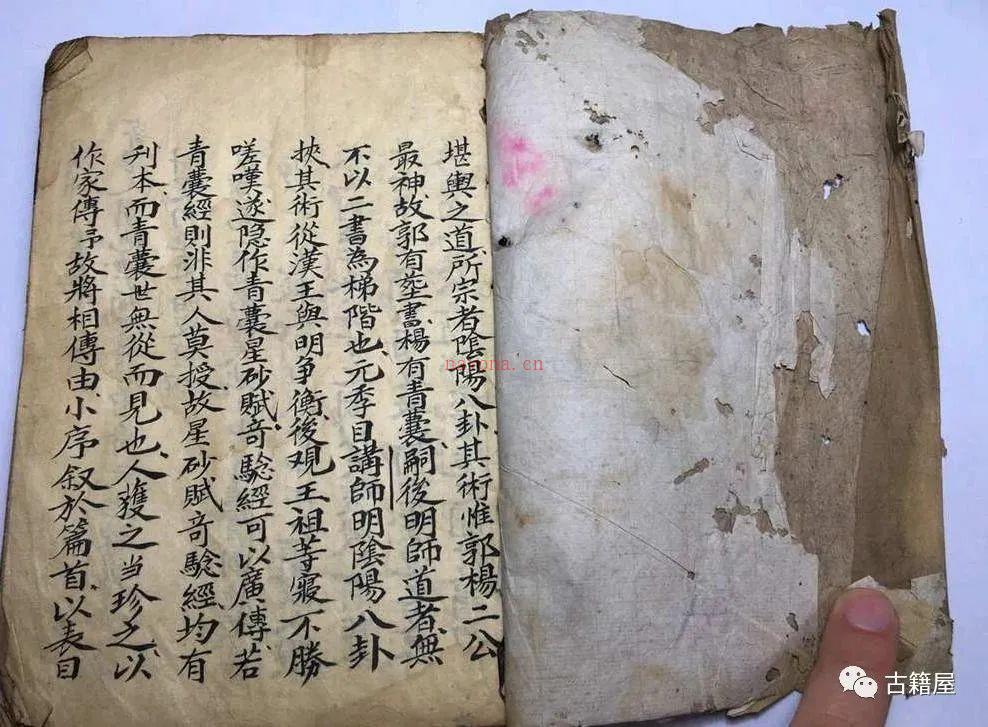 堪輿之道所宗者陰陽八卦其術惟郭楊二公
最神故郭有塟書楊有青囊嗣後明師道者無
不以二書為梯階也元季目講師明陰陽八卦
挾其術從漢王與明爭衡後观王祖等寢不勝
嗟嘆遂隐作青囊星砂賦竒騐經可以廣傳若
青囊經則非其人莫授故星砂賦竒騐經均有
刋本而青囊世無從而見也人獲之当珍之以
作家傳予故將相傳由小序叙於篇首以表目
nayona.cn
古籍屋